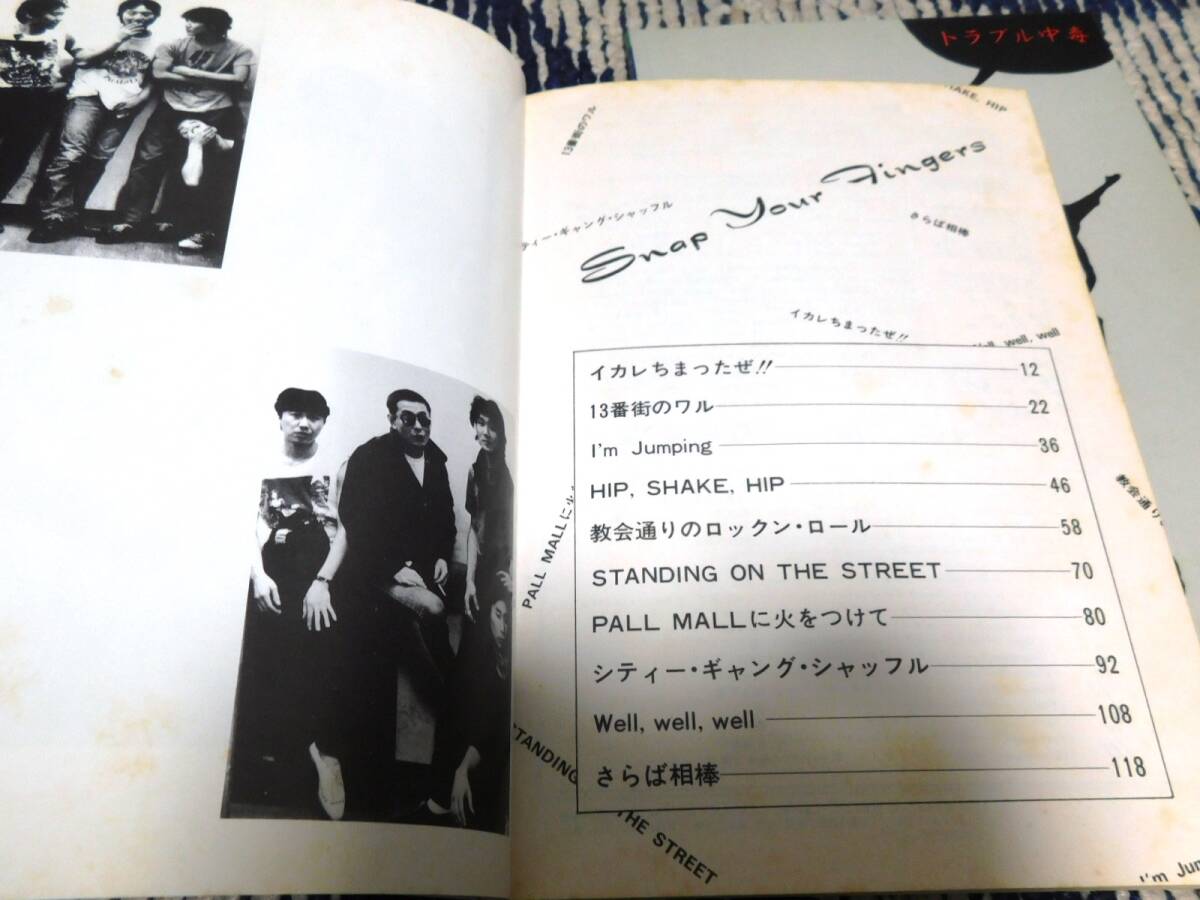 トラブル中毒
HAKE, HIP
13番街のワル
Snap Your Fingers
ティー・ギャング・シャッフル
さらば相棒
イカレちまったぜ!!
well, well
イカレちまったぜ!! 12
13番街のワル 22
I'm Jumping 36
HIP, SHAKE, HIP 46
教会通りのロックン・ロール 58
STANDING ON THE STREET 70
PALL MALLに火をつけて 80
シティー・ギャング・シャッフル 92
Well, well, well 108
さらば相棒 118
教会通り
PALL MALLに火
TANDING
THE STREET
I'm Jum